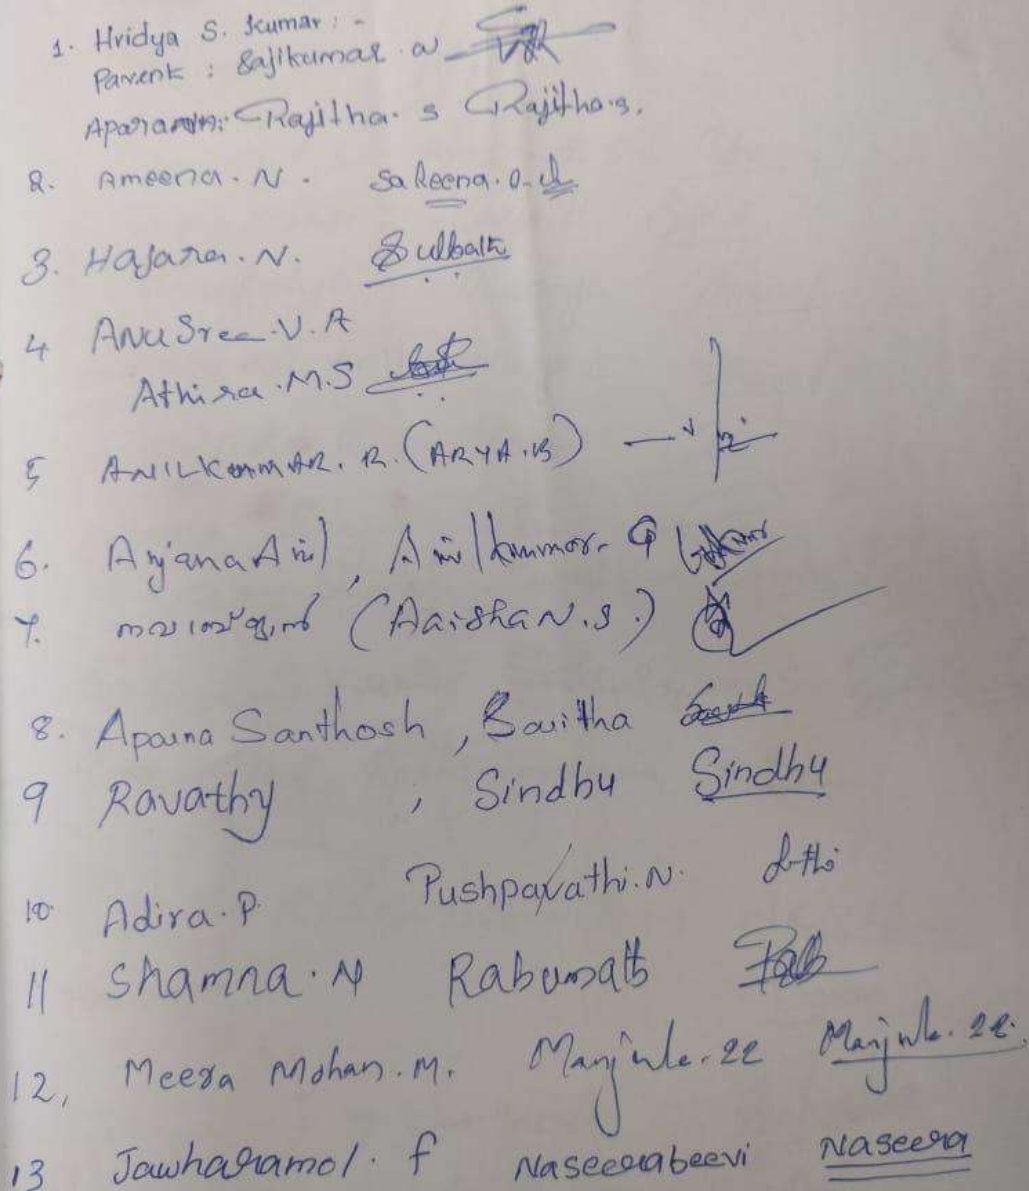 1. Hridya S. Kumar : -
Parent : Sajikumar. N
Rajitha. S Rajitha.S.
2. Ameena. N. Sakeena. O.
3. Hajara. N. Sulbath
4 Anu Sree. V. A
Athira. M.S
5 ANILKUMAR. R. (ARYA.B)
6. Anjana Anil, Anilkumar. G
7. (Aaisha N. S.)
8. Aparna Santhosh, Savitha
9 Ravathy , Sindhu Sindhu
10 Adira. P. Pushpavathi. N.
11 Shamna. N
12, Meera Mohan. M.
13 Jawharamol. f Naseerabeevi Naseera